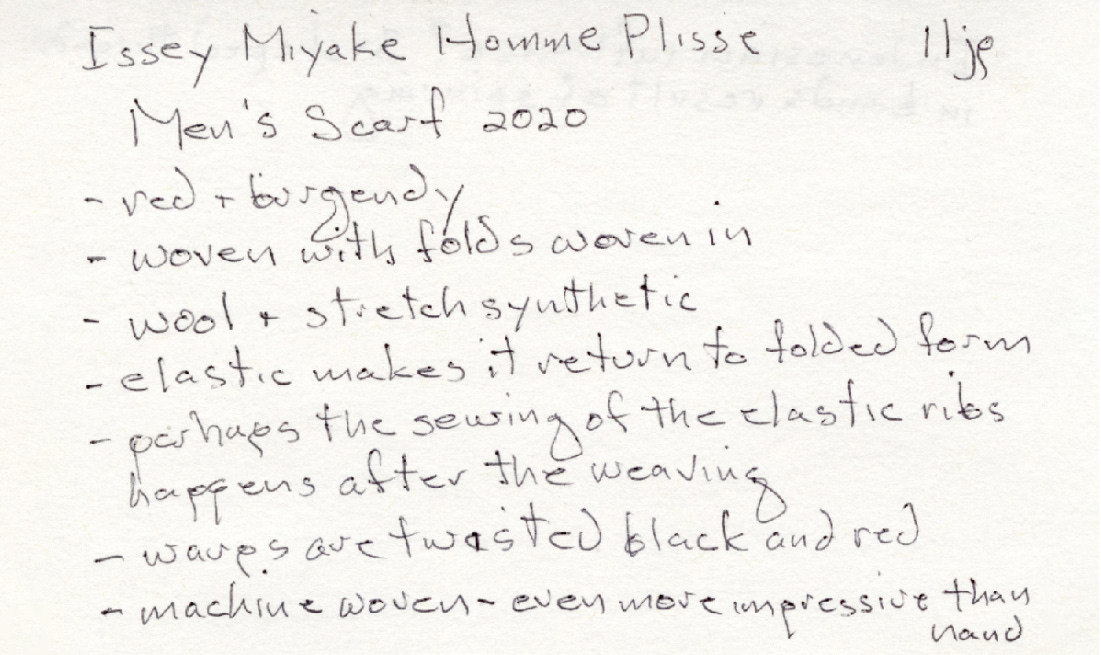 Issey Miyake Homme Plisse 11je
Men's Scarf 2020
- red + burgendy
- woven with folds woven in
- wool + stretch synthetic
- elastic makes it return to folded form
- perhaps the sewing of the elastic ribs
happens after the weaving
- warps are twisted black and red
- machine woven - even more impressive than
hand